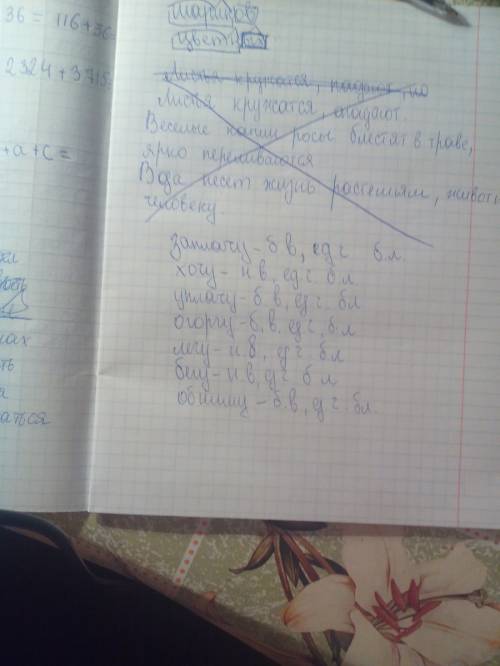 36 = 116+36=
2324+3715=
+a+c=
шариков
цветы
Листья кружатся, падают, но
Листья кружатся, опадают.
Веселые капли росы блестят в траве,
ярко переливаются
Вода несет жизнь растениям, живот
человеку
заплачу - б.в, ед.ч б.л.
хочу - н.в, ед.ч. б.л
уплачу - б.в, ед.ч. б.л
огорчу - б.в, ед.ч. б.л
лечу - н.в, ед.ч. б.л
бегу - н.в, ед.ч. б.л
обниму - б.в, ед.ч. б.л.
ах
ть
а
аться